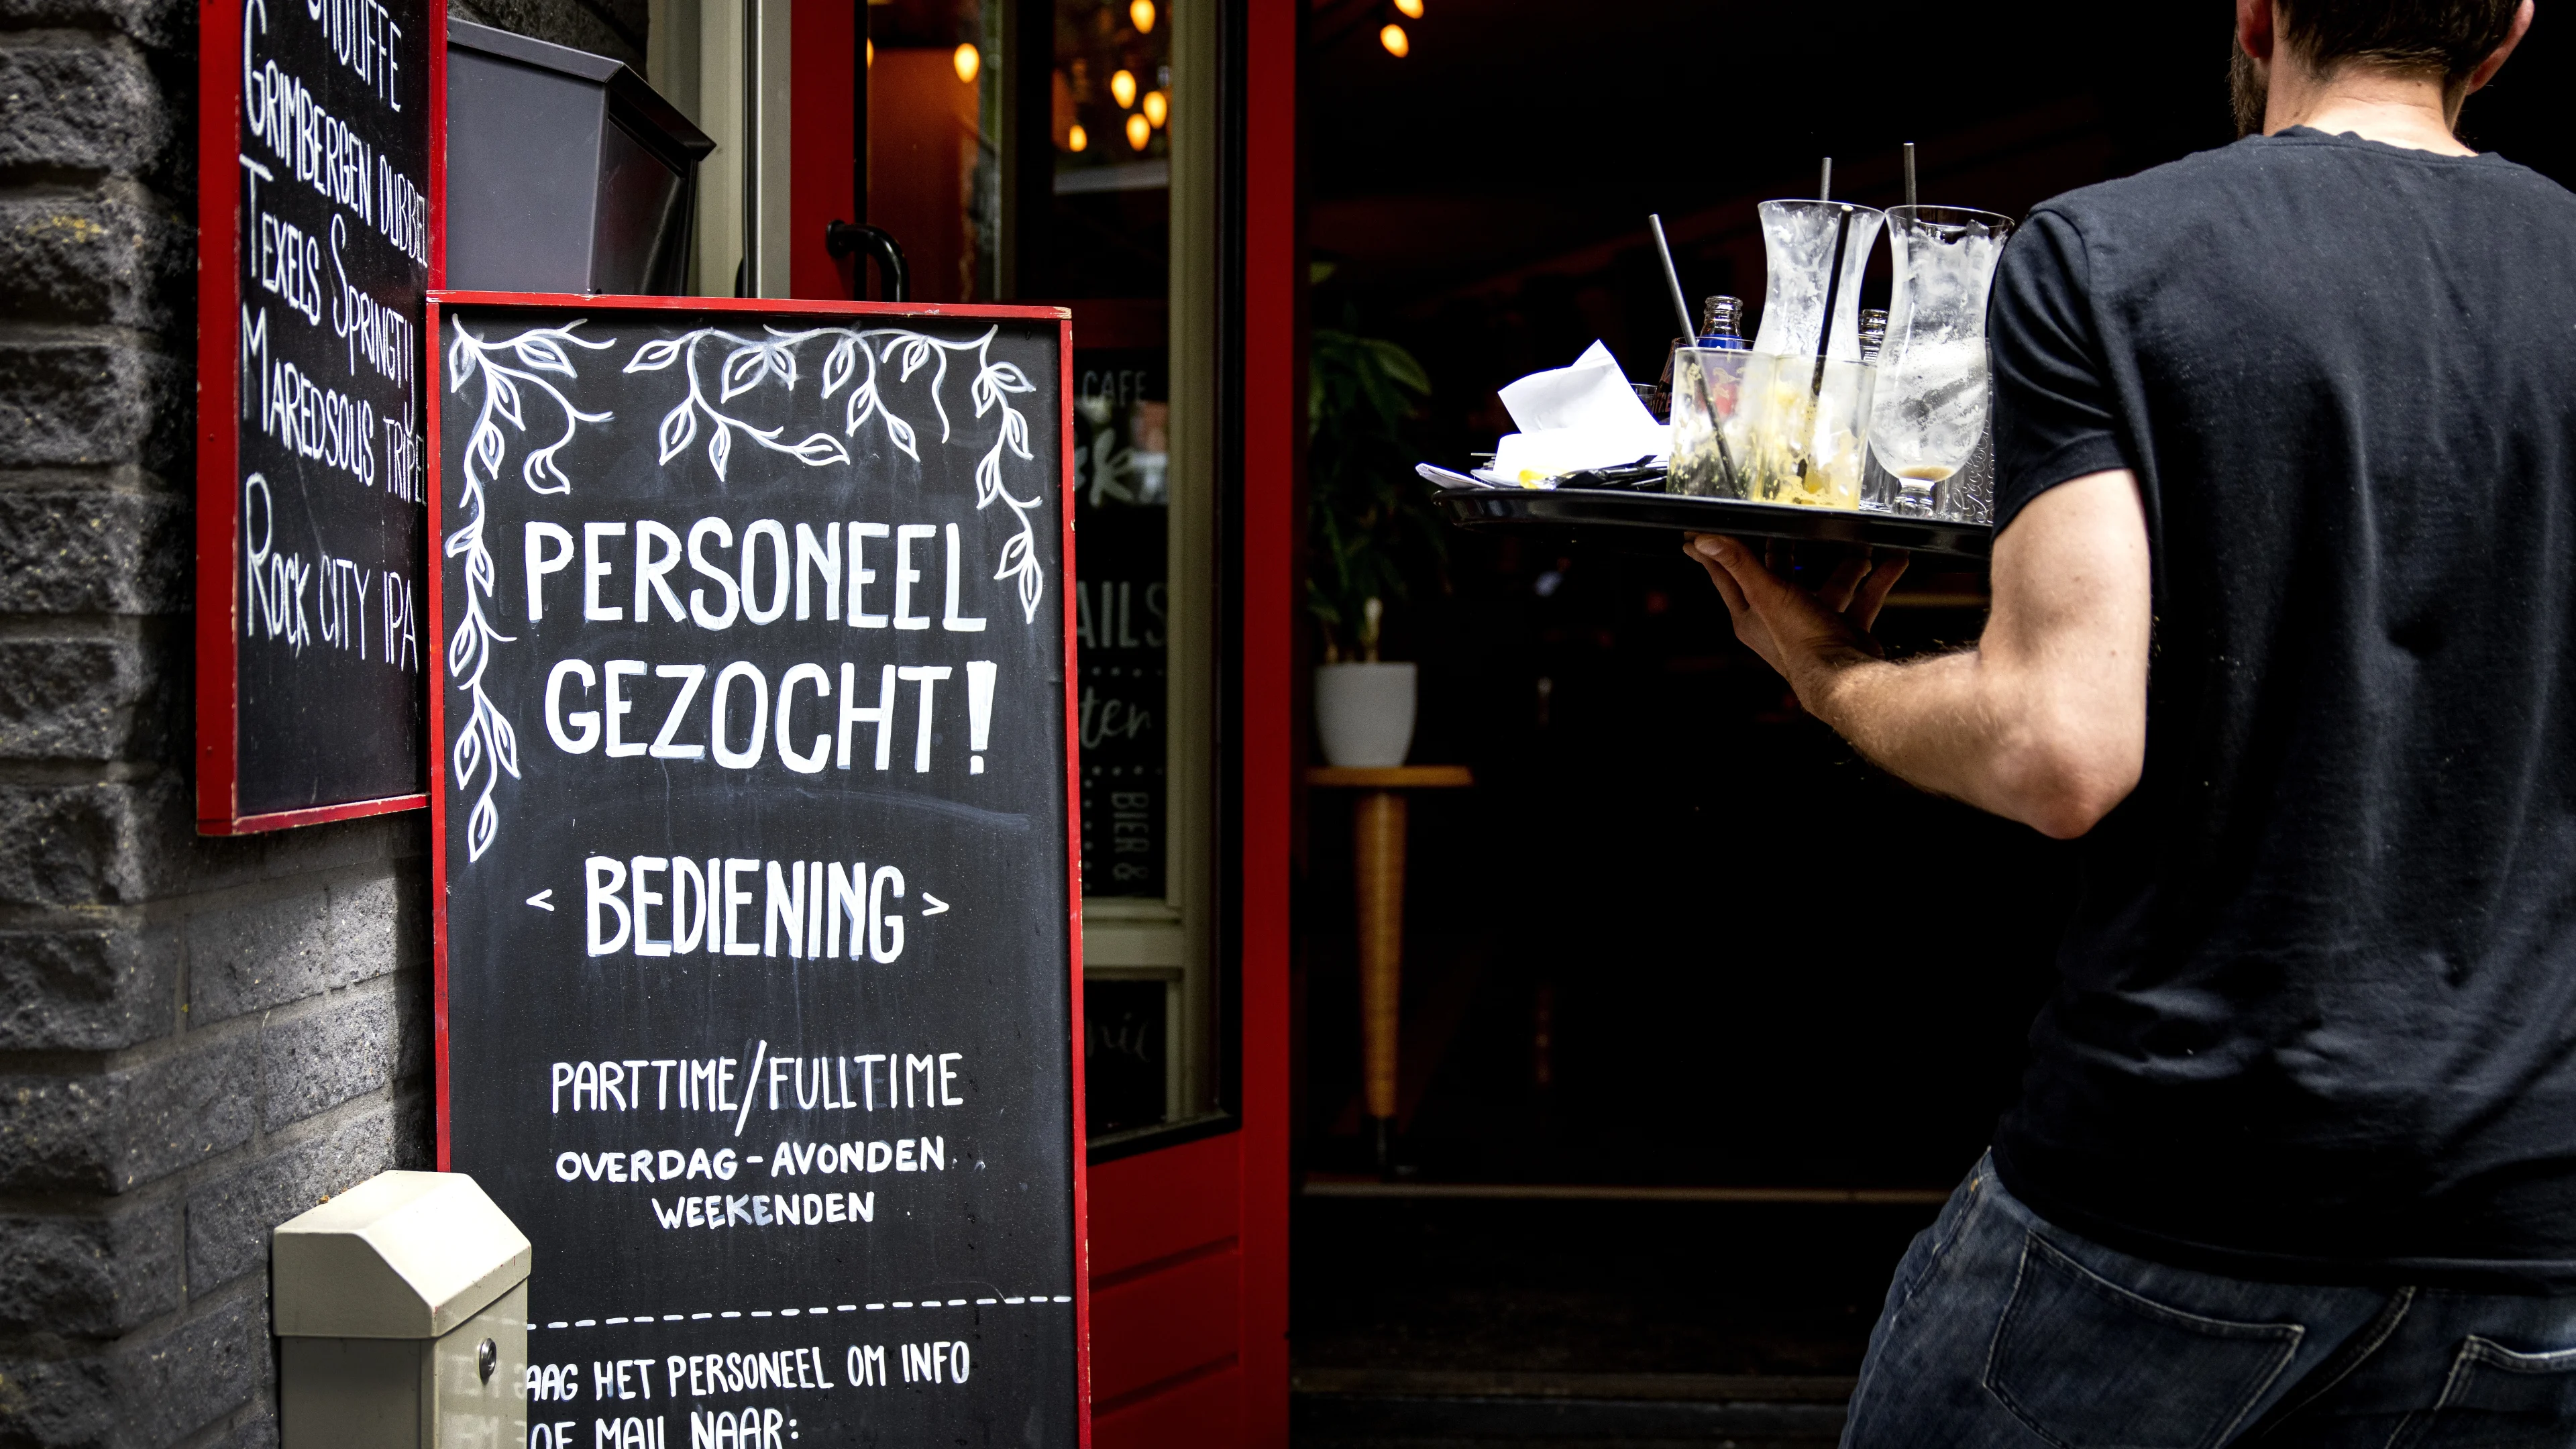 GRIMBERGEN DUBBEL
TEXELS SPRINGTIJ
MAREDSOUS TRIPEL
ROCK CITY IPA
PERSONEEL
GEZOCHT!
< BEDIENING >
PARTTIME/FULLTIME
OVERDAG - AVONDEN
WEEKENDEN
HET PERSONEEL OM INFO
OF MAIL NAAR:
CAFE
BIER &